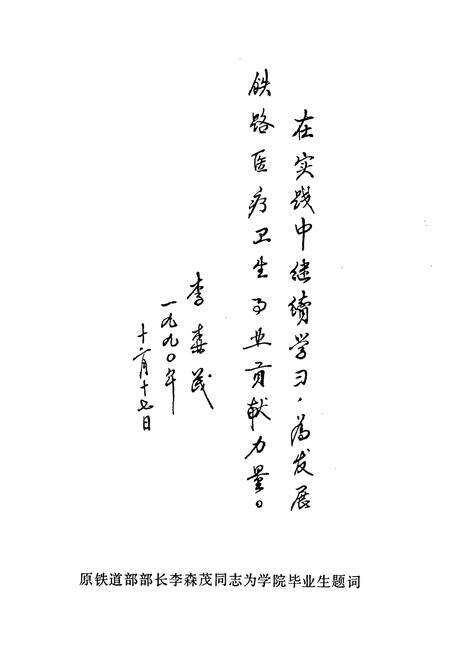 在实践中继续学习，為发展
铁路医疗卫生事业贡献力量。
李森茂
一九九〇年
十二月十七日
原铁道部部长李森茂同志为学院毕业生题词